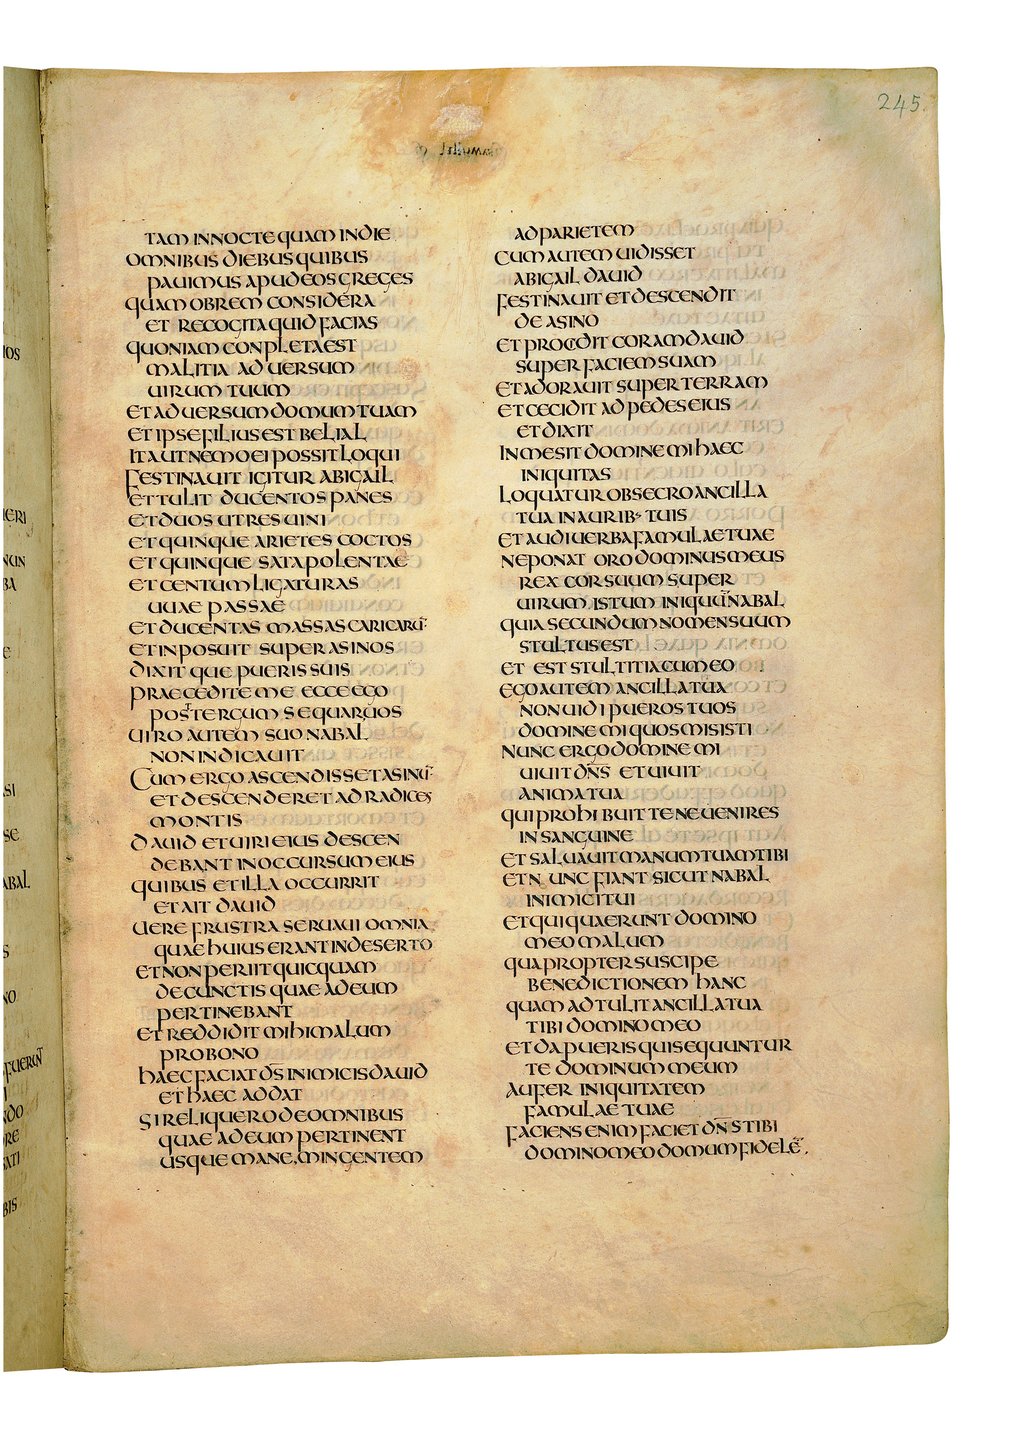 245
TAM INNOCTE QUAM INDIE
OMNIBUS DIEBUS QUIBUS
PAUIMUS APUD EOS GREGES
QUAM OBREM CONSIDERA
ET RECOGITA QUID FACIAS
QUONIAM CONPLETA EST
MALITIA AD UERSUM
UIRUM TUUM
ET AD UERSUM DOMUM TUAM
ET IPSE FILIUS EST BELIAL
ITA UT NEMO EI POSSIT LOQUI
FESTINAUIT IGITUR ABIGAIL
ET TULIT DUCENTOS PANES
ET DUOS UTRES UINI
ET QUINQUE ARIETES COCTOS
ET QUINQUE SATA POLENTAE
ET CENTUM LIGATURAS
UUAE PASSAE
ET DUCENTAS MASSAS CARICARŪ
ET INPOSUIT SUPER ASINOS
DIXIT QUE PUERIS SUIS
PRAECEDITE ME ECCE EGO
POST TERGUM SEQUAR UOS
UIRO AUTEM SUO NABAL
NON INDICAUIT
CUM ERGO ASCENDISSET ASINŪ
ET DESCENDERET AD RADICES
MONTIS
DAUID ET UIRI EIUS DESCEN
DEBANT IN OCCURSUM EIUS
QUIBUS ET ILLA OCCURRIT
ET AIT DAUID
UERE FRUSTRA SERUAUI OMNIA
QUAE HUIUS ERANT IN DESERTO
ET NON PERIIT QUICQUAM
DE CUNCTIS QUAE AD EUM
PERTINEBANT
ET REDDIDIT MIHI MALUM
PRO BONO
HAEC FACIAT D̄S INIMICIS DAUID
ET HAEC ADDAT
SI RELIQUERO DE OMNIBUS
QUAE AD EUM PERTINENT
USQUE MANE, MINGENTEM
AD PARIETEM
CUM AUTEM UIDISSET
ABIGAIL DAUID
FESTINAUIT ET DESCENDIT
DE ASINO
ET PROCIDIT CORAM DAUID
SUPER FACIEM SUAM
ET ADORAUIT SUPER TERRAM
ET CECIDIT AD PEDES EIUS
ET DIXIT
IN ME SIT DOMINE MI HAEC
INIQUITAS
LOQUATUR OBSECRO ANCILLA
TUA IN AURIB· TUIS
ET AUDI UERBA FAMULAE TUAE
NE PONAT ORO DOMINUS MEUS
REX COR SUUM SUPER
UIRUM ISTUM INIQUŪ NABAL
QUIA SECUNDUM NOMEN SUUM
STULTUS EST
ET EST STULTITIA CUM EO
EGO AUTEM ANCILLA TUA
NON UIDI PUEROS TUOS
DOMINE MI QUOS MISISTI
NUNC ERGO DOMINE MI
UIUIT DN̄S ET UIUIT
ANIMA TUA
QUI PROHIBUIT TE NE UENIRES
IN SANGUINE
ET SALUAUIT MANUM TUAM TIBI
ET NUNC FIANT SICUT NABAL
INIMICI TUI
ET QUI QUAERUNT DOMINO
MEO MALUM
QUAPROPTER SUSCIPE
BENEDICTIONEM HANC
QUAM ADTULIT ANCILLA TUA
TIBI DOMINO MEO
ET DA PUERIS QUI SEQUUNTUR
TE DOMINUM MEUM
AUFER INIQUITATEM
FAMULAE TUAE
FACIENS ENIM FACIET DN̄S TIBI
DOMINO MEO DOMUM FIDELĒ